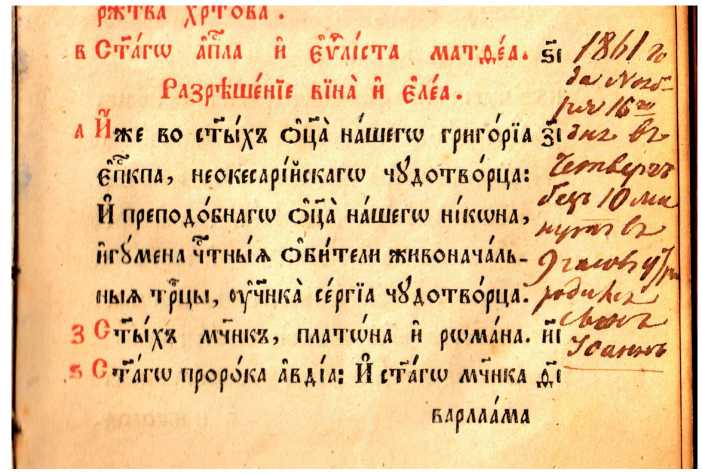 рж҃тва хр҃това.
в Ст҃а́гѡ а҆п҃ла и҆ є҆ѵ҃лі́ста матѳе́а. ѕ҃і
Разрѣше́нїе вїна̀ и҆ є҆ле́а.
а И҆́же во ст҃ы́хъ ѻ҆ц҃а̀ на́шегѡ григо́рїа з҃і
є҆п҃кпа, неокесарі́йскагѡ чꙋдотво́рца:
И҆ преподо́бнагѡ ѻ҆ц҃а̀ на́шегѡ ні́кѡна,
и҆гꙋ́мена чⷭ҇тны́ѧ ѻ҆би́тели живонача́ль-
ныѧ трⷪ҇цы, ᲂу҆ч҃нка̀ се́ргїа чꙋдотво́рца.
з Ст҃ы́хъ мч҃нкъ, платѡ́на и҆ рѡма́на. и҃і
ѕ Ст҃а́гѡ проро́ка а҆вді́а: И҆ ст҃а́гѡ мч҃нка ѳ҃і
варлаа́ма
1861 го
да Нояб-
ря 16го
дня въ
Четвергъ
безъ 10 ми
нутъ въ
9 часовъ
родился
сынъ
Іоаннъ